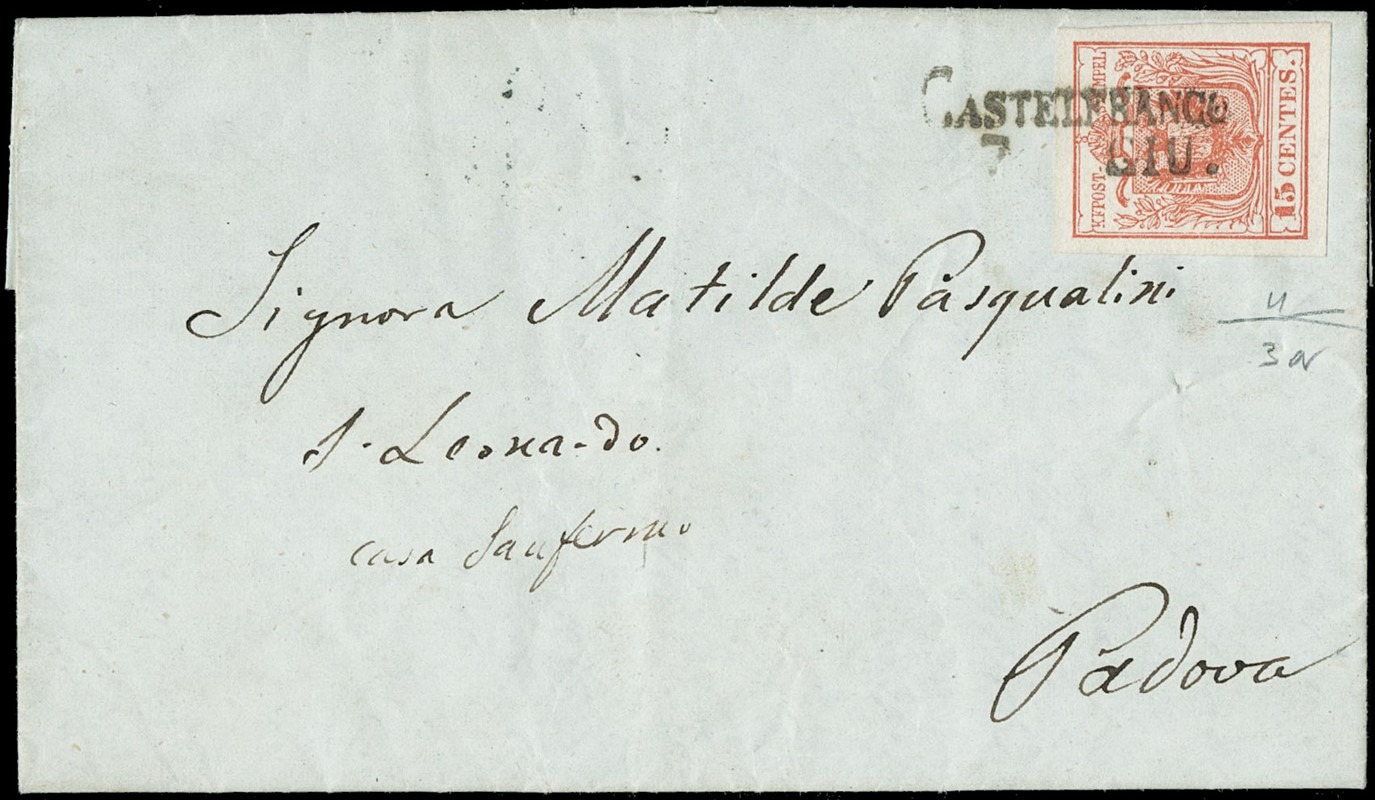 CASTELFRANCO
GIU.
KKPOST-STEMPEL
15 CENTES.
Signora Matilde Pasqualini
S. Leonardo.
casa Sanfermo
Padova
4
3 a